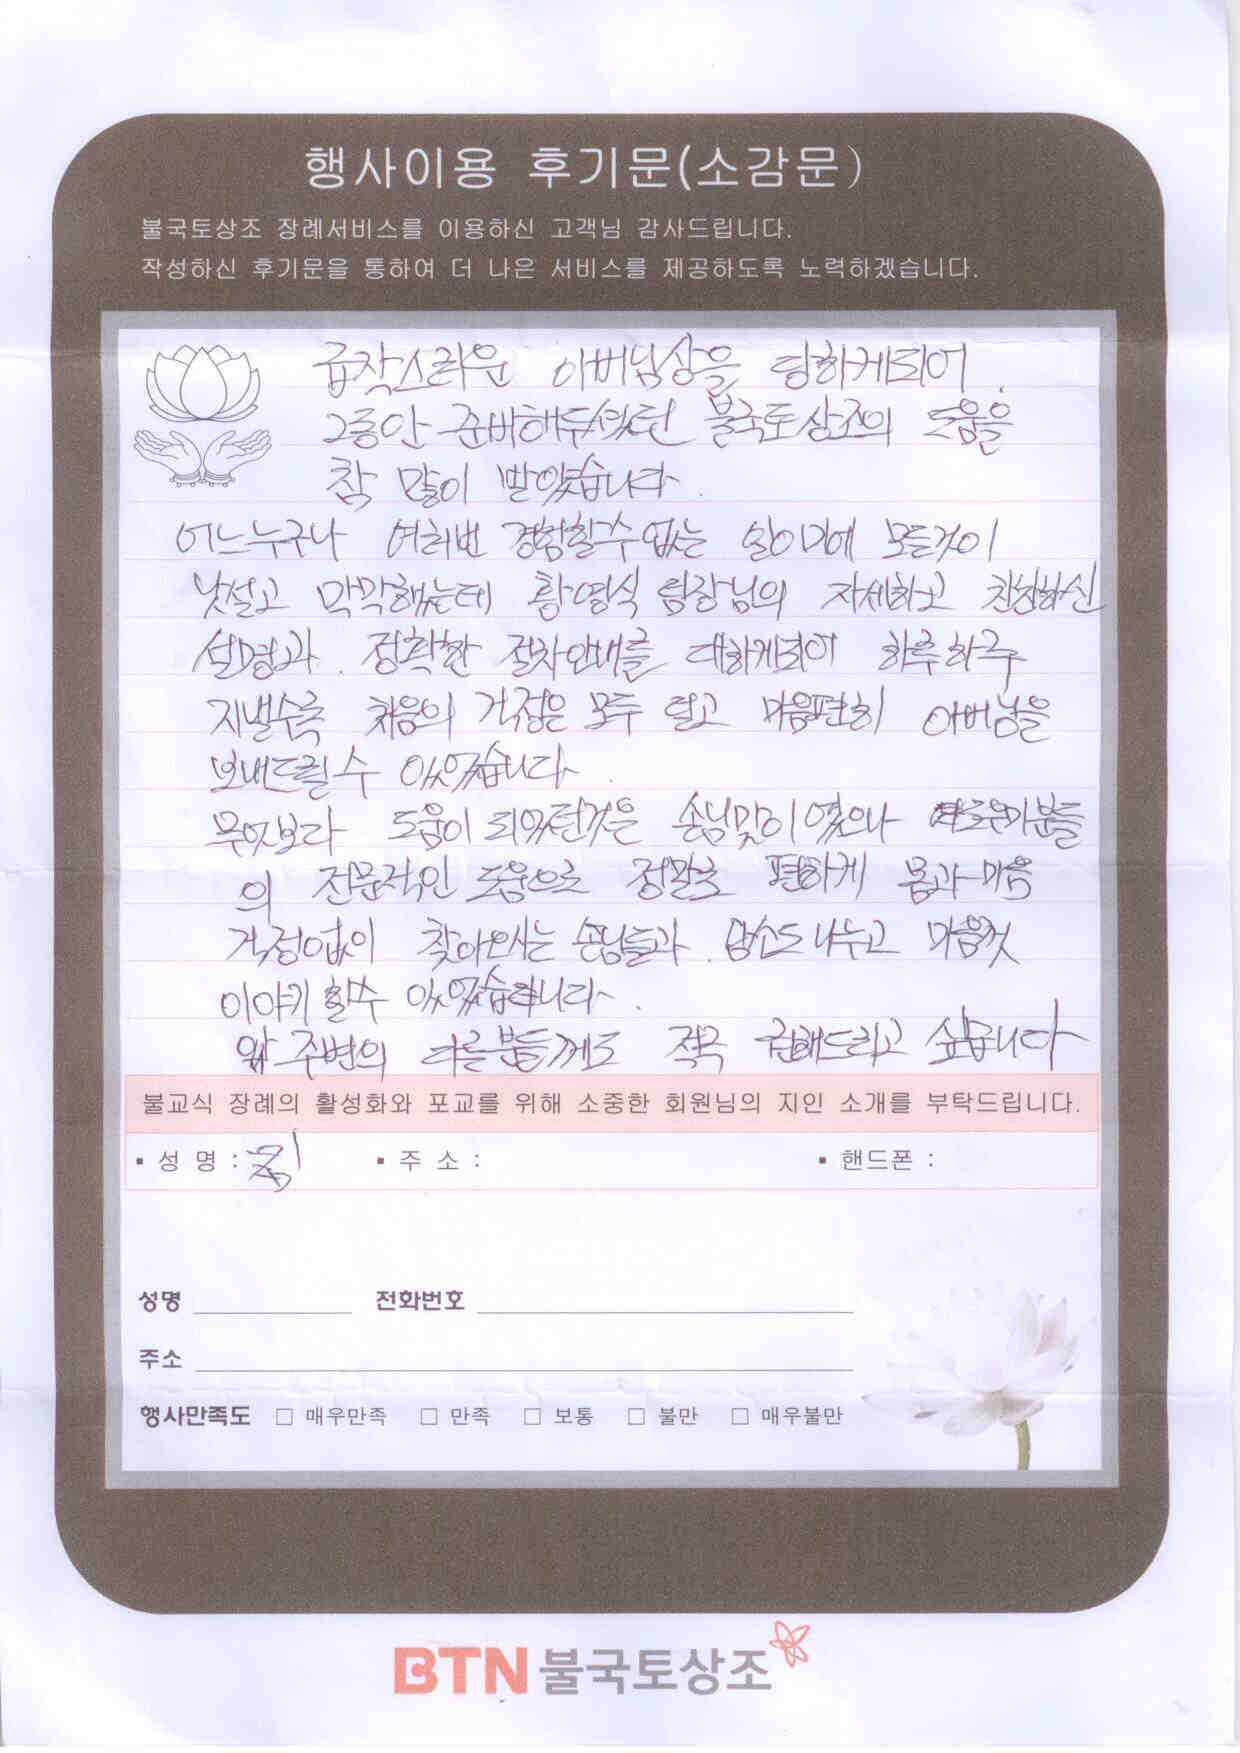 행사이용 후기문(소감문)
불국토상조 장례서비스를 이용하신 고객님 감사드립니다.
작성하신 후기문을 통하여 더 나은 서비스를 제공하도록 노력하겠습니다.
급작스러운 아버님상을 당하게되어.
그동안 준비해두었던 불국토상조의 도움을
참 많이 받았습니다.
어느누구나 여러번 경험할수없는 일이기에 모든것이
낯설고 막막했는데 황영식 팀장님의 자세하고 친절하신
설명과. 정확한 절차안내를 대하게되어 하루하루
지낼수록 처음의 걱정은 모두 덜고 마음편히 아버님을
보내드릴수 있었습니다.
무엇보다 도움이 되었던것은 손님맞이였으나
의 전문적인 도움으로 정말로 편하게 몸과 마음
걱정없이 찾아오시는 손님들과. 담소도 나누고 마음껏
이야기 할수 있었습니다.
주변의 다른분들께도 적극 권해드리고 싶습니다
불교식 장례의 활성화와 포교를 위해 소중한 회원님의 지인 소개를 부탁드립니다.
▪ 성 명 : ▪ 주 소 : ▪ 핸드폰 :
성명 전화번호
주소
행사만족도 □ 매우만족 □ 만족 □ 보통 □ 불만 □ 매우불만
BTN 불국토상조